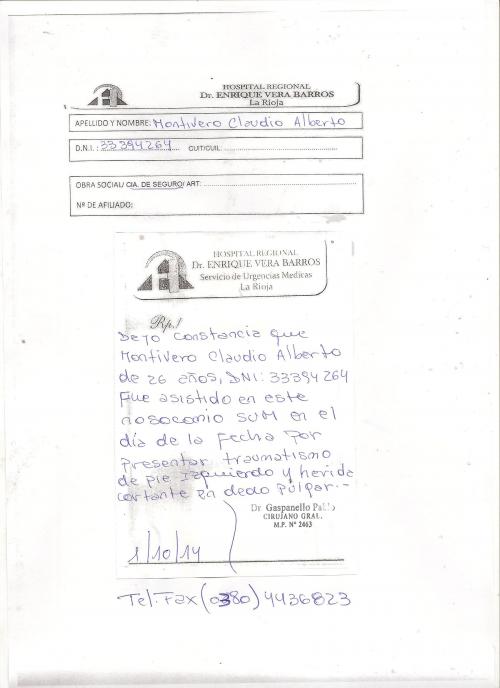 HOSPITAL REGIONAL
Dr. ENRIQUE VERA BARROS
La Rioja
APELLIDO Y NOMBRE: Montivero Claudio Alberto
D.N.I.: 33394264 CUIT/CUIL:
OBRA SOCIAL/ CIA. DE SEGURO/ ART:
Nº DE AFILIADO:
HOSPITAL REGIONAL
Dr. ENRIQUE VERA BARROS
Servicio de Urgencias Medicas
La Rioja
Rp./
Dejo constancia que
Montivero Claudio Alberto
de 26 años, DNI: 33394264
Fue asistido en este
nosocomio SUM en el
día de la fecha por
presentar traumatismo
de pie Izquierdo y herida
cortante en dedo pulgar.-
Dr. Gaspanello Pablo
CIRUJANO GRAL.
M.P. Nº 2463
1/10/14
Tel. Fax (0380) 4436823